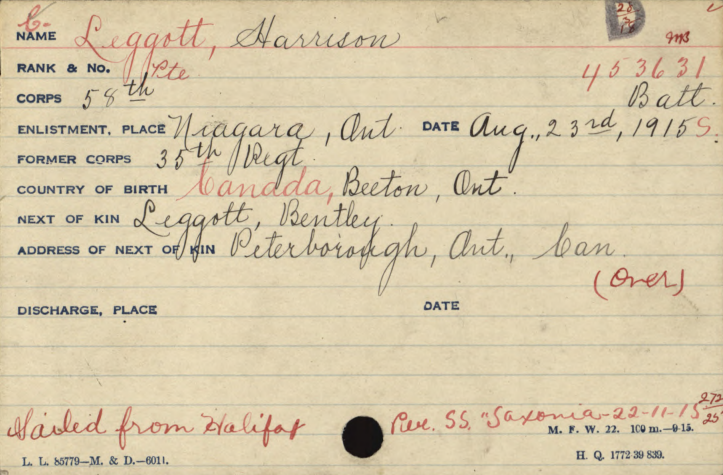 C.
28
2
18
NAME Leggott, Harrison MB
RANK & NO. Pte 453631
CORPS 58th Batt.
ENLISTMENT, PLACE Niagara, Ont. DATE Aug., 23rd, 1915 S.
FORMER CORPS 35th Regt.
COUNTRY OF BIRTH Canada, Beeton, Ont.
NEXT OF KIN Leggott, Bentley.
ADDRESS OF NEXT OF KIN Peterborough, Ont., Can.
(Over)
DISCHARGE, PLACE DATE
Sailed from Halifax Per. SS. "Saxonia-22-11-15 272/25
M. F. W. 22. 100 m.—9-15.
L. L. 85779—M. & D.—6011. H. Q. 1772 39 839.